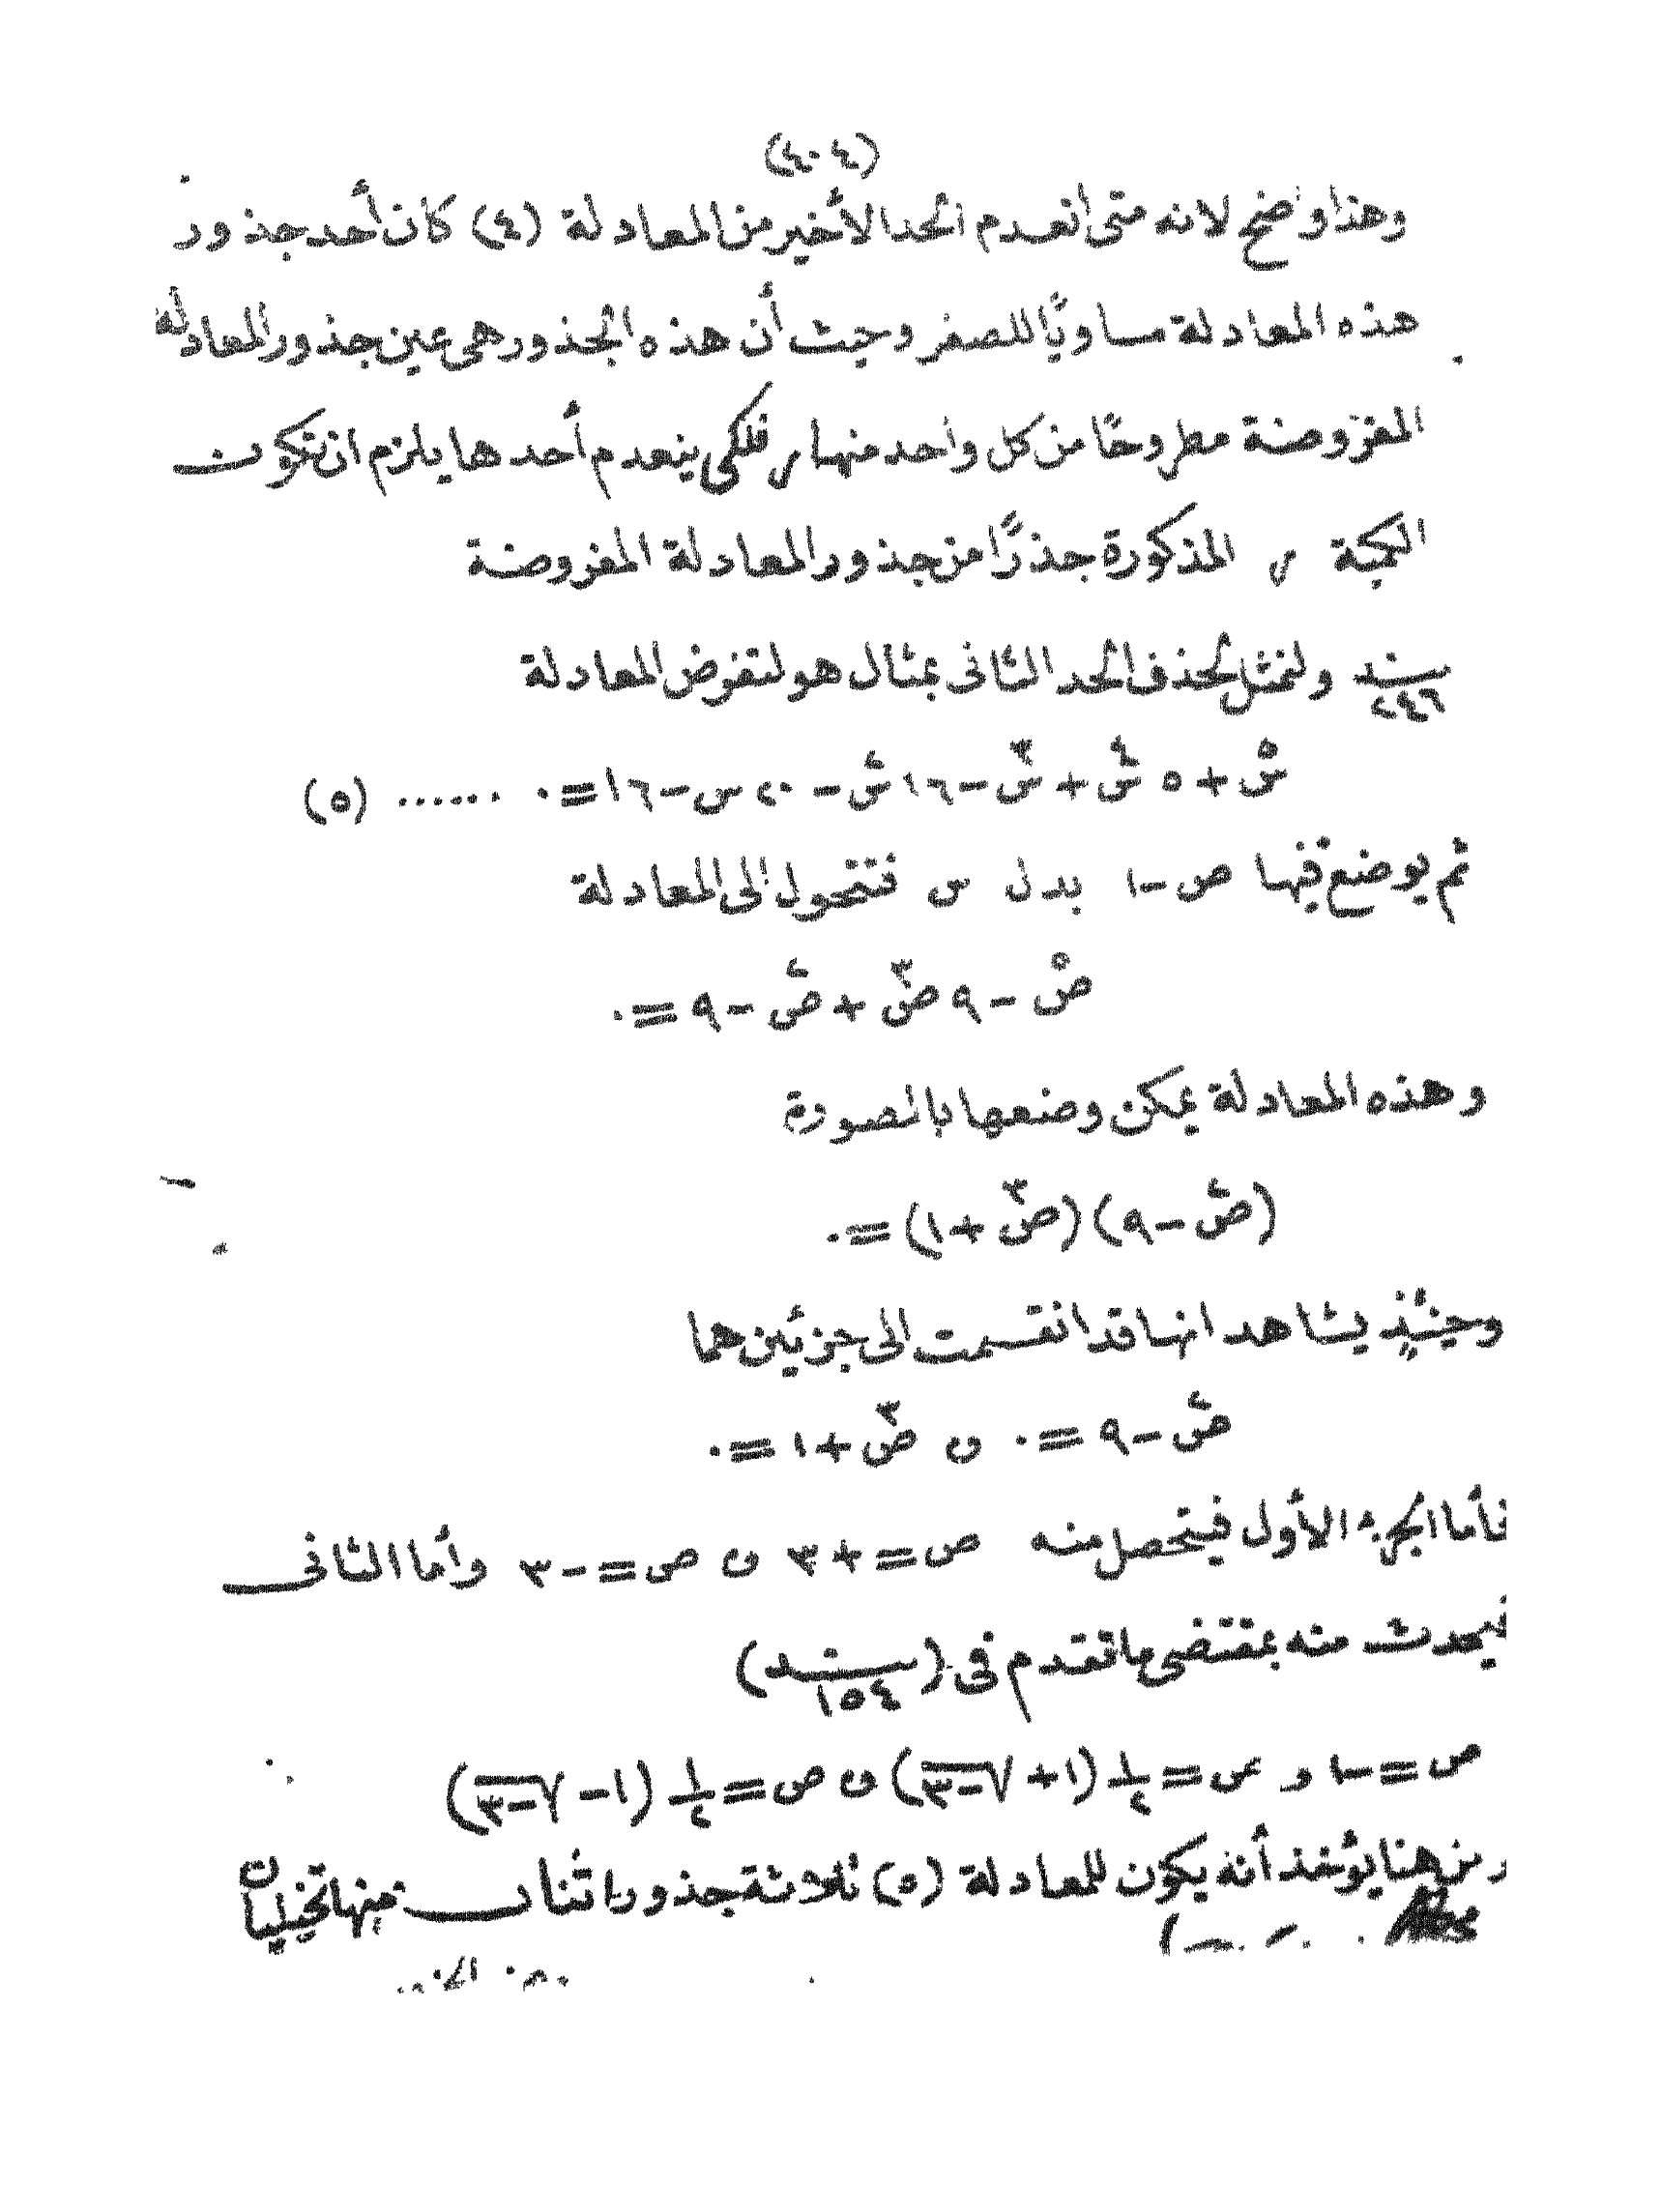 (٤٠٤)
وهذا واضح لانه متى انعدم الحد الأخير من المعادلة (٤) كان أحد جذور
هذه المعادلة مساويًا للصفر وحيث أن هذه الجذور هى عين جذور المعادلة
المفروضة مطروحًا من كل واحد منها م فلكى ينعدم أحدها يلزم ان تكون
الكمية م المذكورة جذرًا من جذور المعادلة المفروضة
بند ٢٤٦ ولنمثل لحذف الحد الثانى بمثال هو لتفرض المعادلة
س^٥ + ٥ س^٤ + س^٣ - ١٦ س^٢ - ٢٠ س - ١٦ = ٠ ...... (٥)
ثم يوضع فيها ص - ١ بدل س فتتحول الى المعادلة
ص^٥ - ٩ ص^٣ + ص^٢ - ٩ = ٠
وهذه المعادلة يمكن وضعها بالصورة
(ص^٢ - ٩) (ص^٣ + ١) = ٠
وحينئذٍ يشاهد انها قد انقسمت الى جزئين هما
ص^٢ - ٩ = ٠ ں ص^٣ + ١ = ٠
فأما الجزء الأول فيتحصل منه ص = + ٣ ں ص = - ٣ وأما الثانى
فيحدث منه بمقتضى ما تقدم فى (بند ١٥٤)
ص = - ١ و ص = ١/٢ (١ + √-٣) ں ص = ١/٢ (١ - √-٣)
ومن هنا يؤخذ أنه يكون للمعادلة (٥) ثلاثة جذور اثنان منها تخيليان